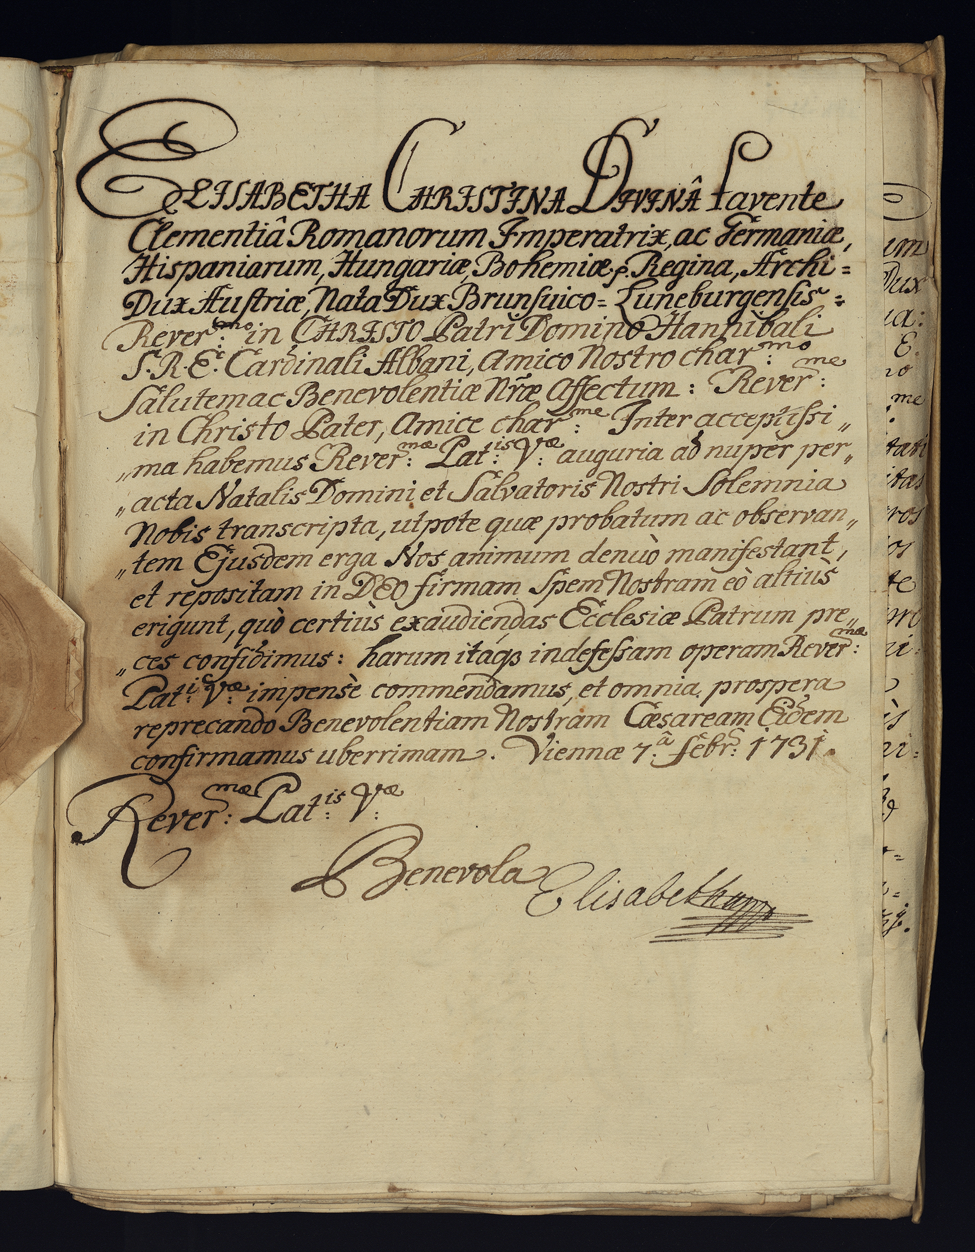 ELISABETHA CHRISTINA DIVINÂ favente
Clementiâ Romanorum Imperatrix, ac Germaniæ,
Hispaniarum, Hungariæ, Bohemiæ Regina, Archi=
Dux Austriæ, Nata Dux Brunsuico= Luneburgensis:
Rever:mo in CHRISTO Patri Domino Hannibali
S.R.E. Cardinali Albani, Amico Nostro char:mo
Salutem ac Benevolentiæ Nræ Affectum: Rever:me
in Christo Pater, Amice char:me Inter acceptissi„
„ma habemus Rever:mæ Pat:is Væ auguria ad nuper per„
„acta Natalis Domini et Salvatoris Nostri Solemnia
Nobis transcripta, utpote quæ probatum ac observan„
„tem Ejusdem erga Nos animum denuò manifestant,
et repositam in DEO firmam Spem Nostram eò altiùs
erigunt, quò certiùs exaudiendas Ecclesiæ Patrum pre„
„ces confidimus: harum itaqз indefessam operam Rever:mæ
Pat:is Væ impensè commendamus, et omnia prospera
reprecando Benevolentiam Nostram Cæsaream Eidem
confirmamus uberrimam. Viennæ 7.â febr: 1731.
Rever:mæ Pat:is V:æ
Benevola Elisabetha